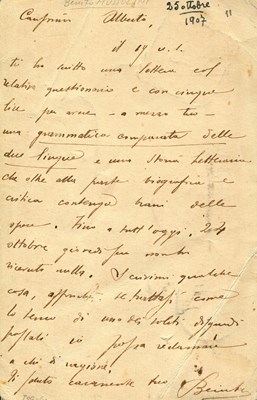 Benito Mussolini
25 ottobre
1907
11
Carissimo Alberto,
il 19 u. s.
ti ho scritto una lettera col
relativo questionario e con cinque
lire per avere - a mezzo tuo -
una grammatica comparata delle
due lingue e una storia letteraria
che oltre alla parte biografica e
critica contenga brani delle
opere. Fino a tutt'oggi, 24
ottobre giovedì sera non ho
ricevuto nulla. Scrivimi qualche
cosa, affinchè se trattasi come
lo temo di uno dei soliti disguidi
postali io possa reclamare
a chi di ragione.
Ti saluto caramente tuo Benito